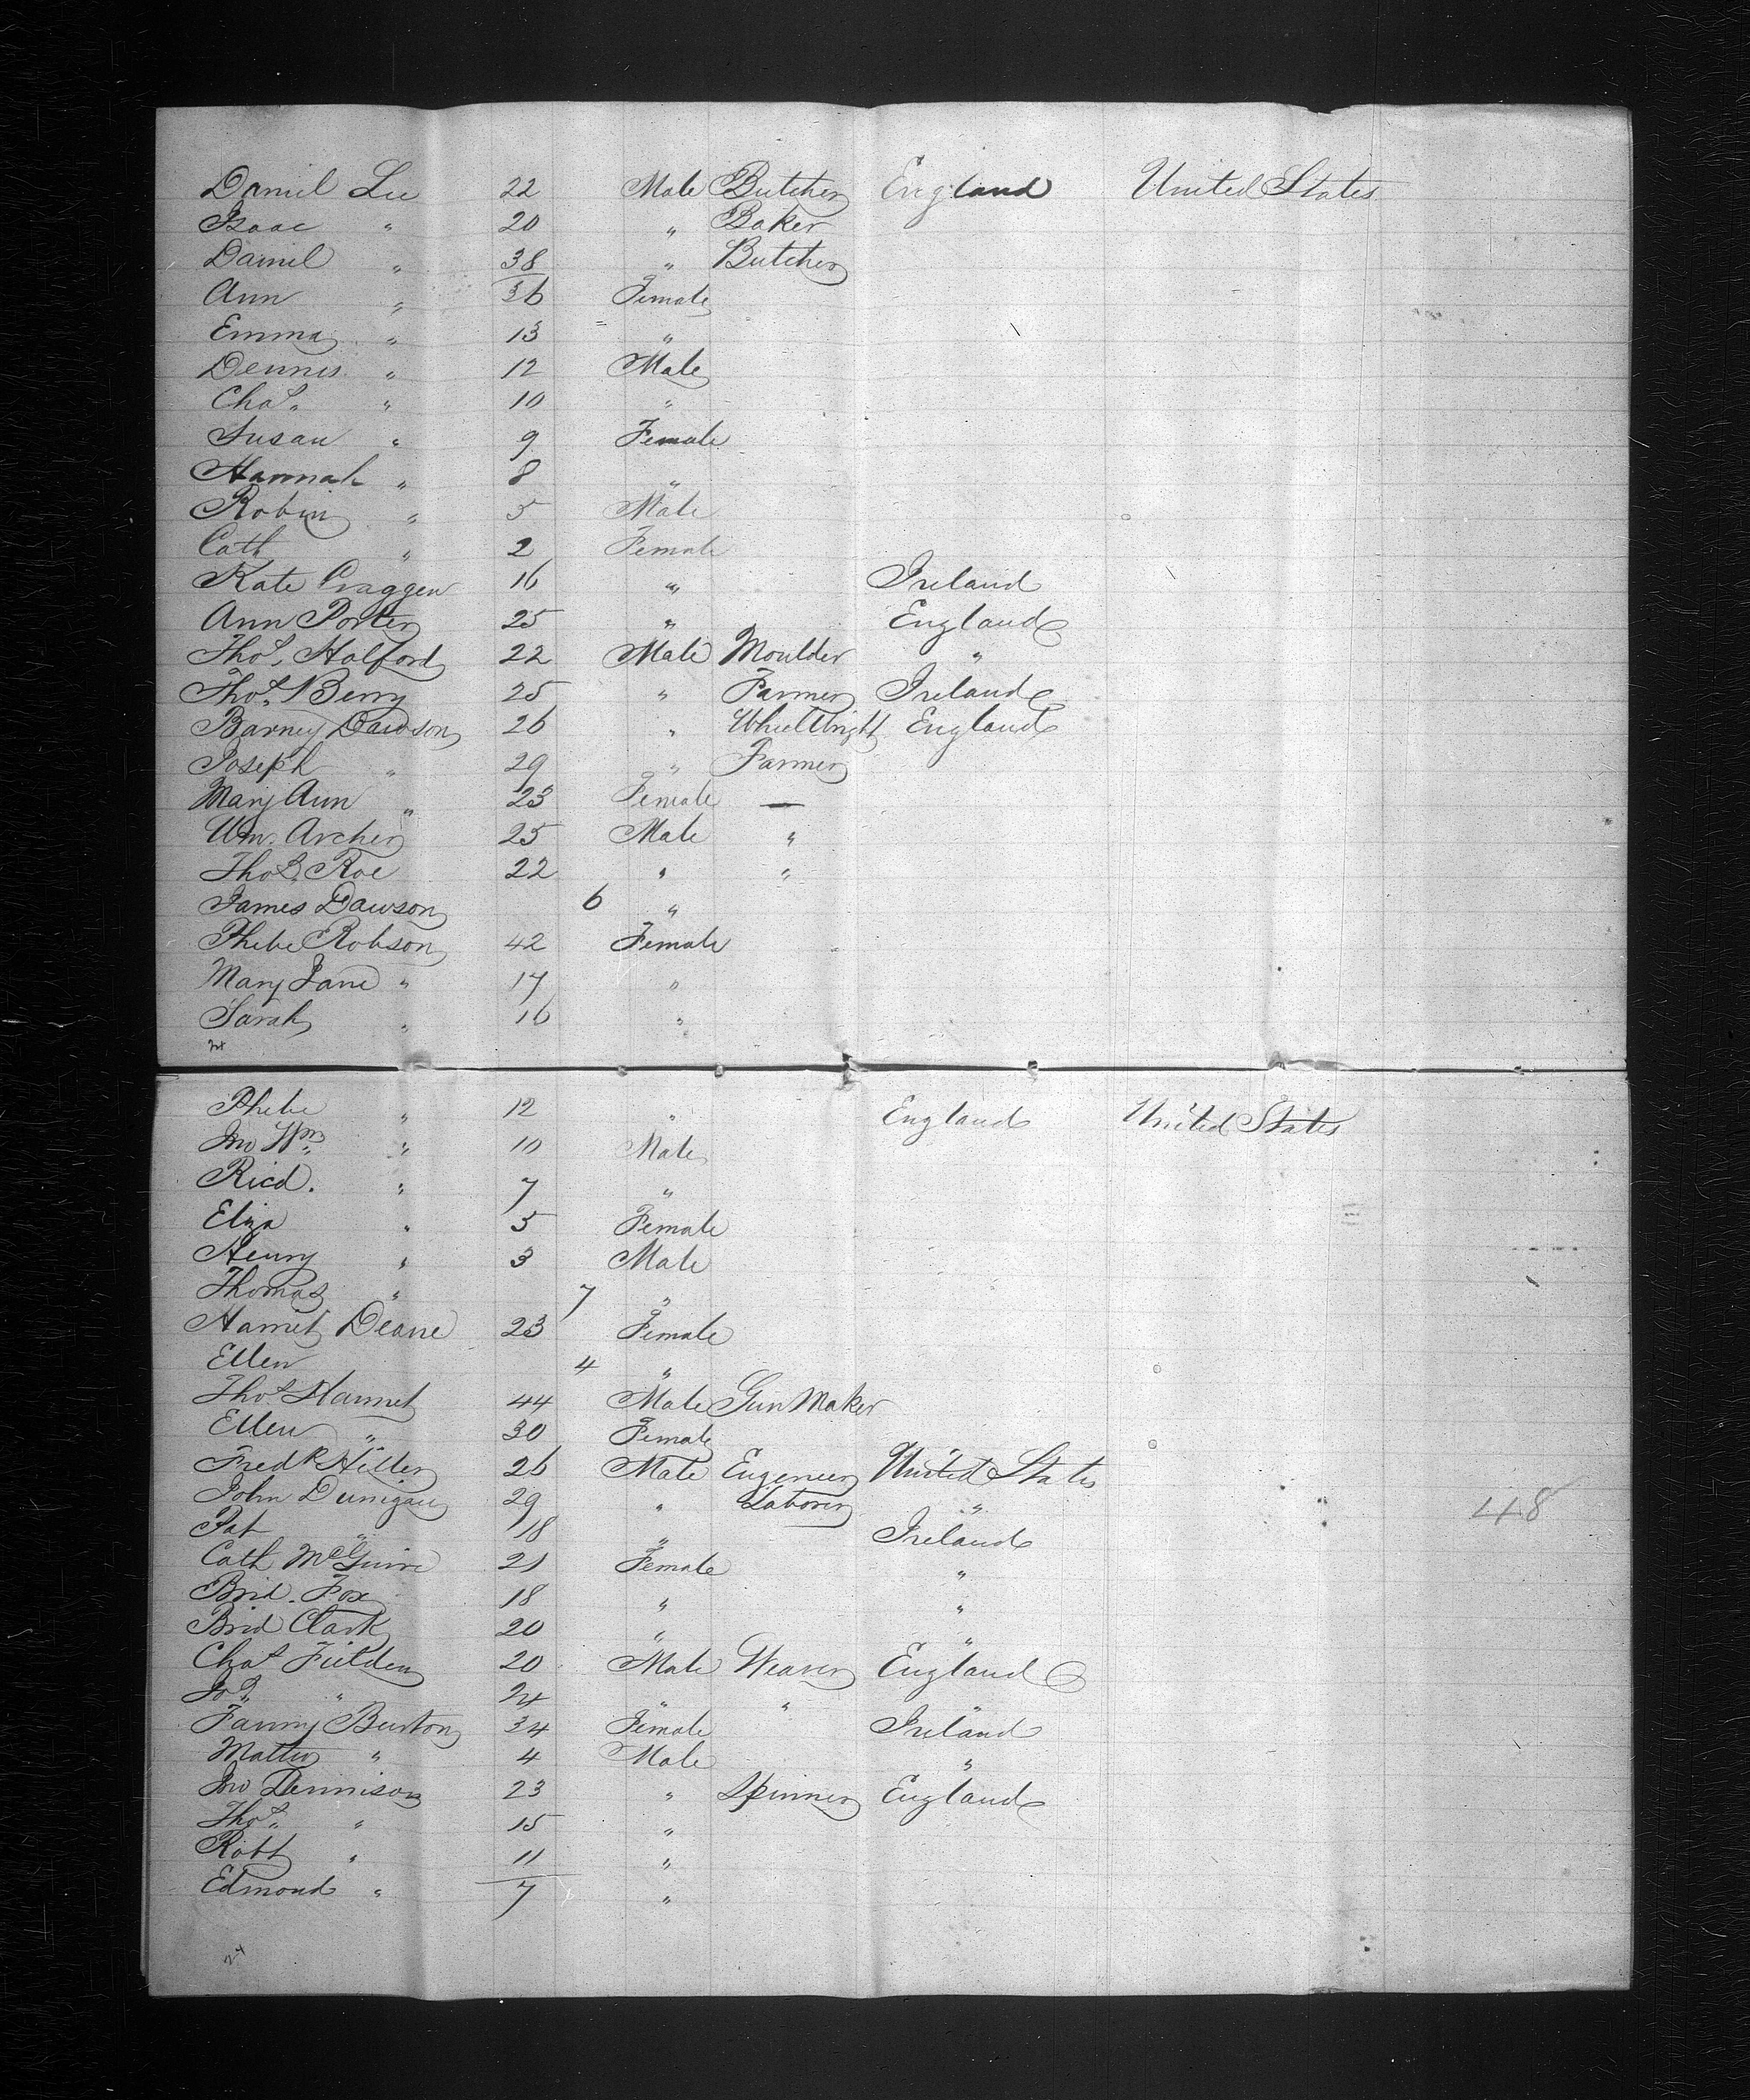 Daniel Lee 22 Male Butcher England United States
Isaac " 20 " Baker
Daniel " 38 " Butcher
Ann " 36 Female
Emma " 13 "
Dennis " 12 Male
Chas. " 10 "
Susan " 9 Female
Hannah " 8 "
Robin " 5 Male
Cath " 2 Female
Kate Craggen 16 " Ireland
Ann Porter 25 " England
Thos. Halford 22 Male Moulder "
Thos. Berry 25 " Farmer Ireland
Barney Dawson 26 " Wheelwright England
Joseph " 29 " Farmer
Mary Ann " 23 Female —
Wm. Archer 25 Male "
Thos. Roe 22 " "
James Dawson 6 "
Phebe Robson 42 Female
Mary Jane " 17 "
Sarah " 16 "
24
Phebe " 12 " England United States
Jno Wm. " 10 Male
Ricd. " 7 "
Eliza " 5 Female
Henry " 3 Male
Thomas " 7 "
Harriet Deane 23 Female
Ellen 4 "
Thos. Hamnet 44 Male Gun Maker
Ellen " 30 Female
Fredk Hiller 26 Male Engeneer United States
John Dunigan 29 " Laborer "
Pat " 18 " Ireland
Cath McGuire 21 Female "
Brid. Fox 18 " "
Brid Clark 20 " "
Chas Fielden 20 Male Weaver England
Jos. " 24 " " "
Fanny Burton 34 Female Ireland
Mattw " 4 Male "
Jno Dennison 23 " Spinner England
Thos. " 15 "
Robt " 11 "
Edmond " 7 "
24
48